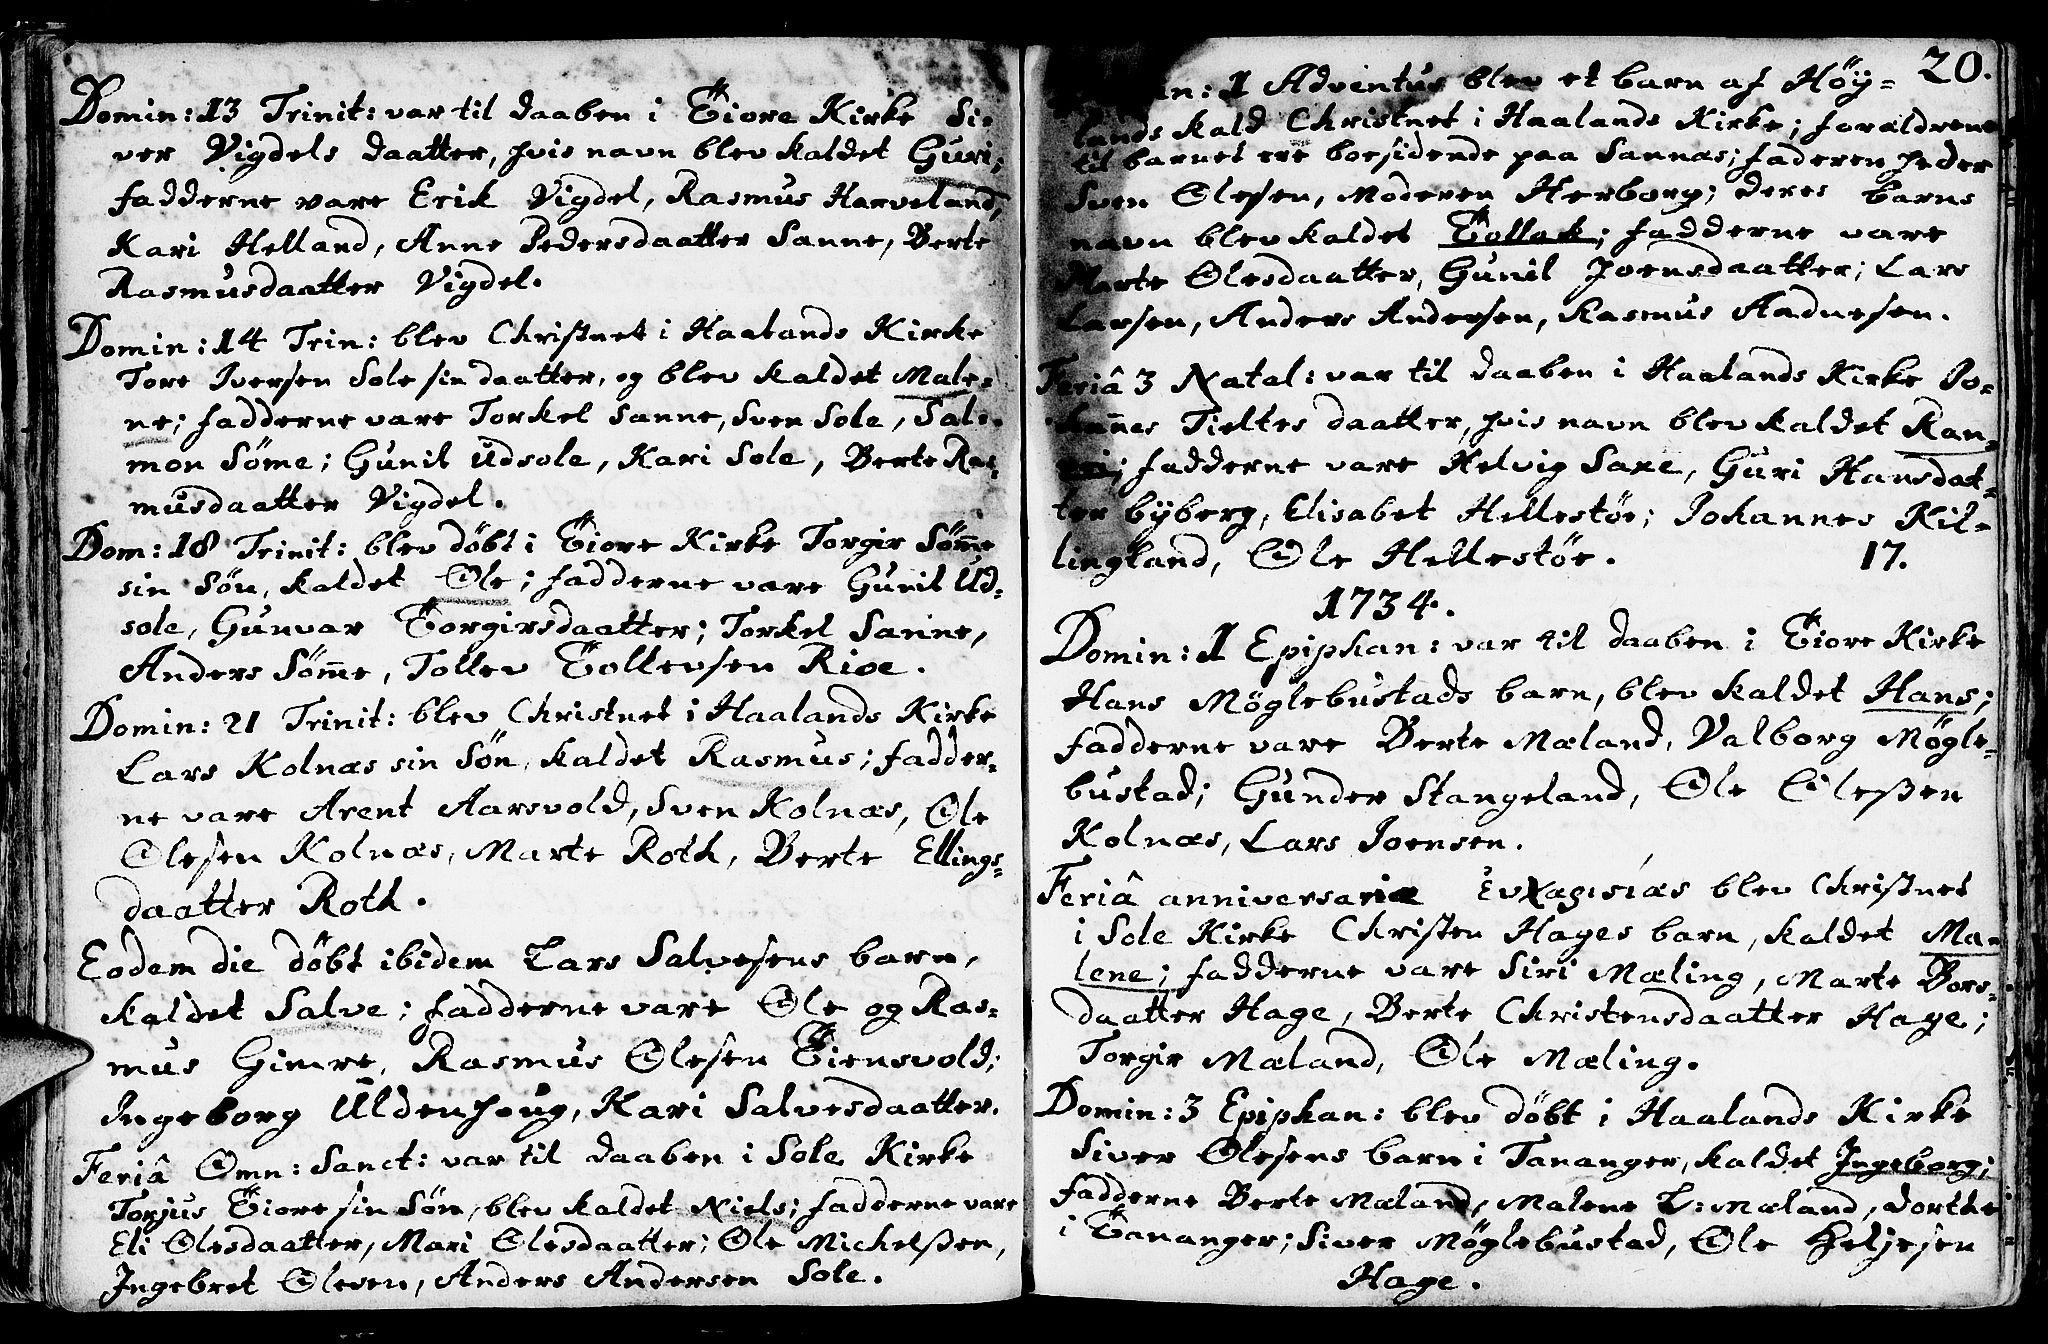 Domin: 13 Trinit: var til daaben i Tiora Kirke Si-
ver Vigdels daatter, hvis navn blev kaldet Guri;
fadderne vare Erik Vigdel, Rasmus Harveland,
Kari Helland, Anne Pedersdaatter Sanne, Berte
Rasmusdaatter Vigdel.
Domin: 14 Trin: blev Christnet i Haalands Kirke
Tore Iversen Sole sin daatter, og blev kaldet Male-
ne; fadderne vare Torkel Sanne, Sven Sole, Sal-
mon Söme; Gunil Udsole, Kari Sole, Berte Ras-
musdaatter Vigdel.
Dom: 18 Trinit: blev döbt i Tiore Kirke Torgir Söm̄e
sin Sön, kaldet Ole; fadderne vare Gunil Ud-
sole, Gunvar Torgirsdaatter; Torkel Sanne,
Anders Söm̄e, Tollev Tollevsen Rioe.
Domin: 21 Trinit: blev Christnet i Haalands Kirke
Lars Kolnæs sin Sön, kaldet Rasmus; fadder-
ne vare Arent Aarsvold, Sven Kolnæs, Ole
Olesen Kolnæs, Marte Roth, Berte Ellings-
daatter Roth.
Eodem die döbt ibidem Lars Salvesens barn,
kaldet Salve; fadderne vare Ole og Ras-
mus Gimre, Rasmus Olesen Tiensvold;
Ingeborg Uldenhoug, Kari Salvesdaatter.
Feriâ Omn: Sanct: var til daaben i Sole Kirke
Torjus Tiore sin Sön, blev kaldet Niels; fadderne vare
Eli Olesdaatter, Mari Olesdaatter; Ole Michelßen,
Ingebret Olesen, Anders Andersen Sole.
20.
in: 1 Adventus blev et barn af Höÿ-
lands kald Christnet i Haalands Kirke; forældrene
til barnet ere boesidende paa Sannæs; faderen heder
Sven Olesen, Moderen Herborg; deres barns
navn blev kaldet Tollak; fadderne vare
Marte Olesdaatter, Gunil Joensdaatter; Lars
Larsen, Anders Andersen, Rasmus Aadnesen.
Feriâ 3 Natal: var til daaben i Haalands Kirke Jo-
han̄es Tieltes daatter, hvis navn blev kaldet Ran-
fadderne vare Helvig Saxe, Guri Hansdat-
ter bÿberg, Elisabet Hellestöe; Johannes Kil-
lingland, Ole Hellestöe. 17.
1734.
Domin: 1 Epiphan: var til daaben i Tiore Kirke
Hans Möglebustads barn, blev kaldet Hans;
fadderne vare Berte Mæland, Valborg Mögle-
bustad; Gunder Stangeland, Ole Oleßen
Kolnæs, Lars Joensen.
Feriâ anniversariæ blev Christnet
i Sole Kirke Christen Hages barn, kaldet Ma-
lene; fadderne vare Siri Mæling, Marte Bors-
daatter Hage, Berte Christensdaatter Hage;
Torgir Mæland, Ole Mæling.
Domin: 3 Epiphan: blev döbt i Haalands Kirke
Siver Olesens barn i Tananger, kaldet Ingeborg;
fadderne Berte Mæland, Malene L: Mæland, Dorthe
i Tananger; Siver Möglebustad, Ole Heljesen
Hage.